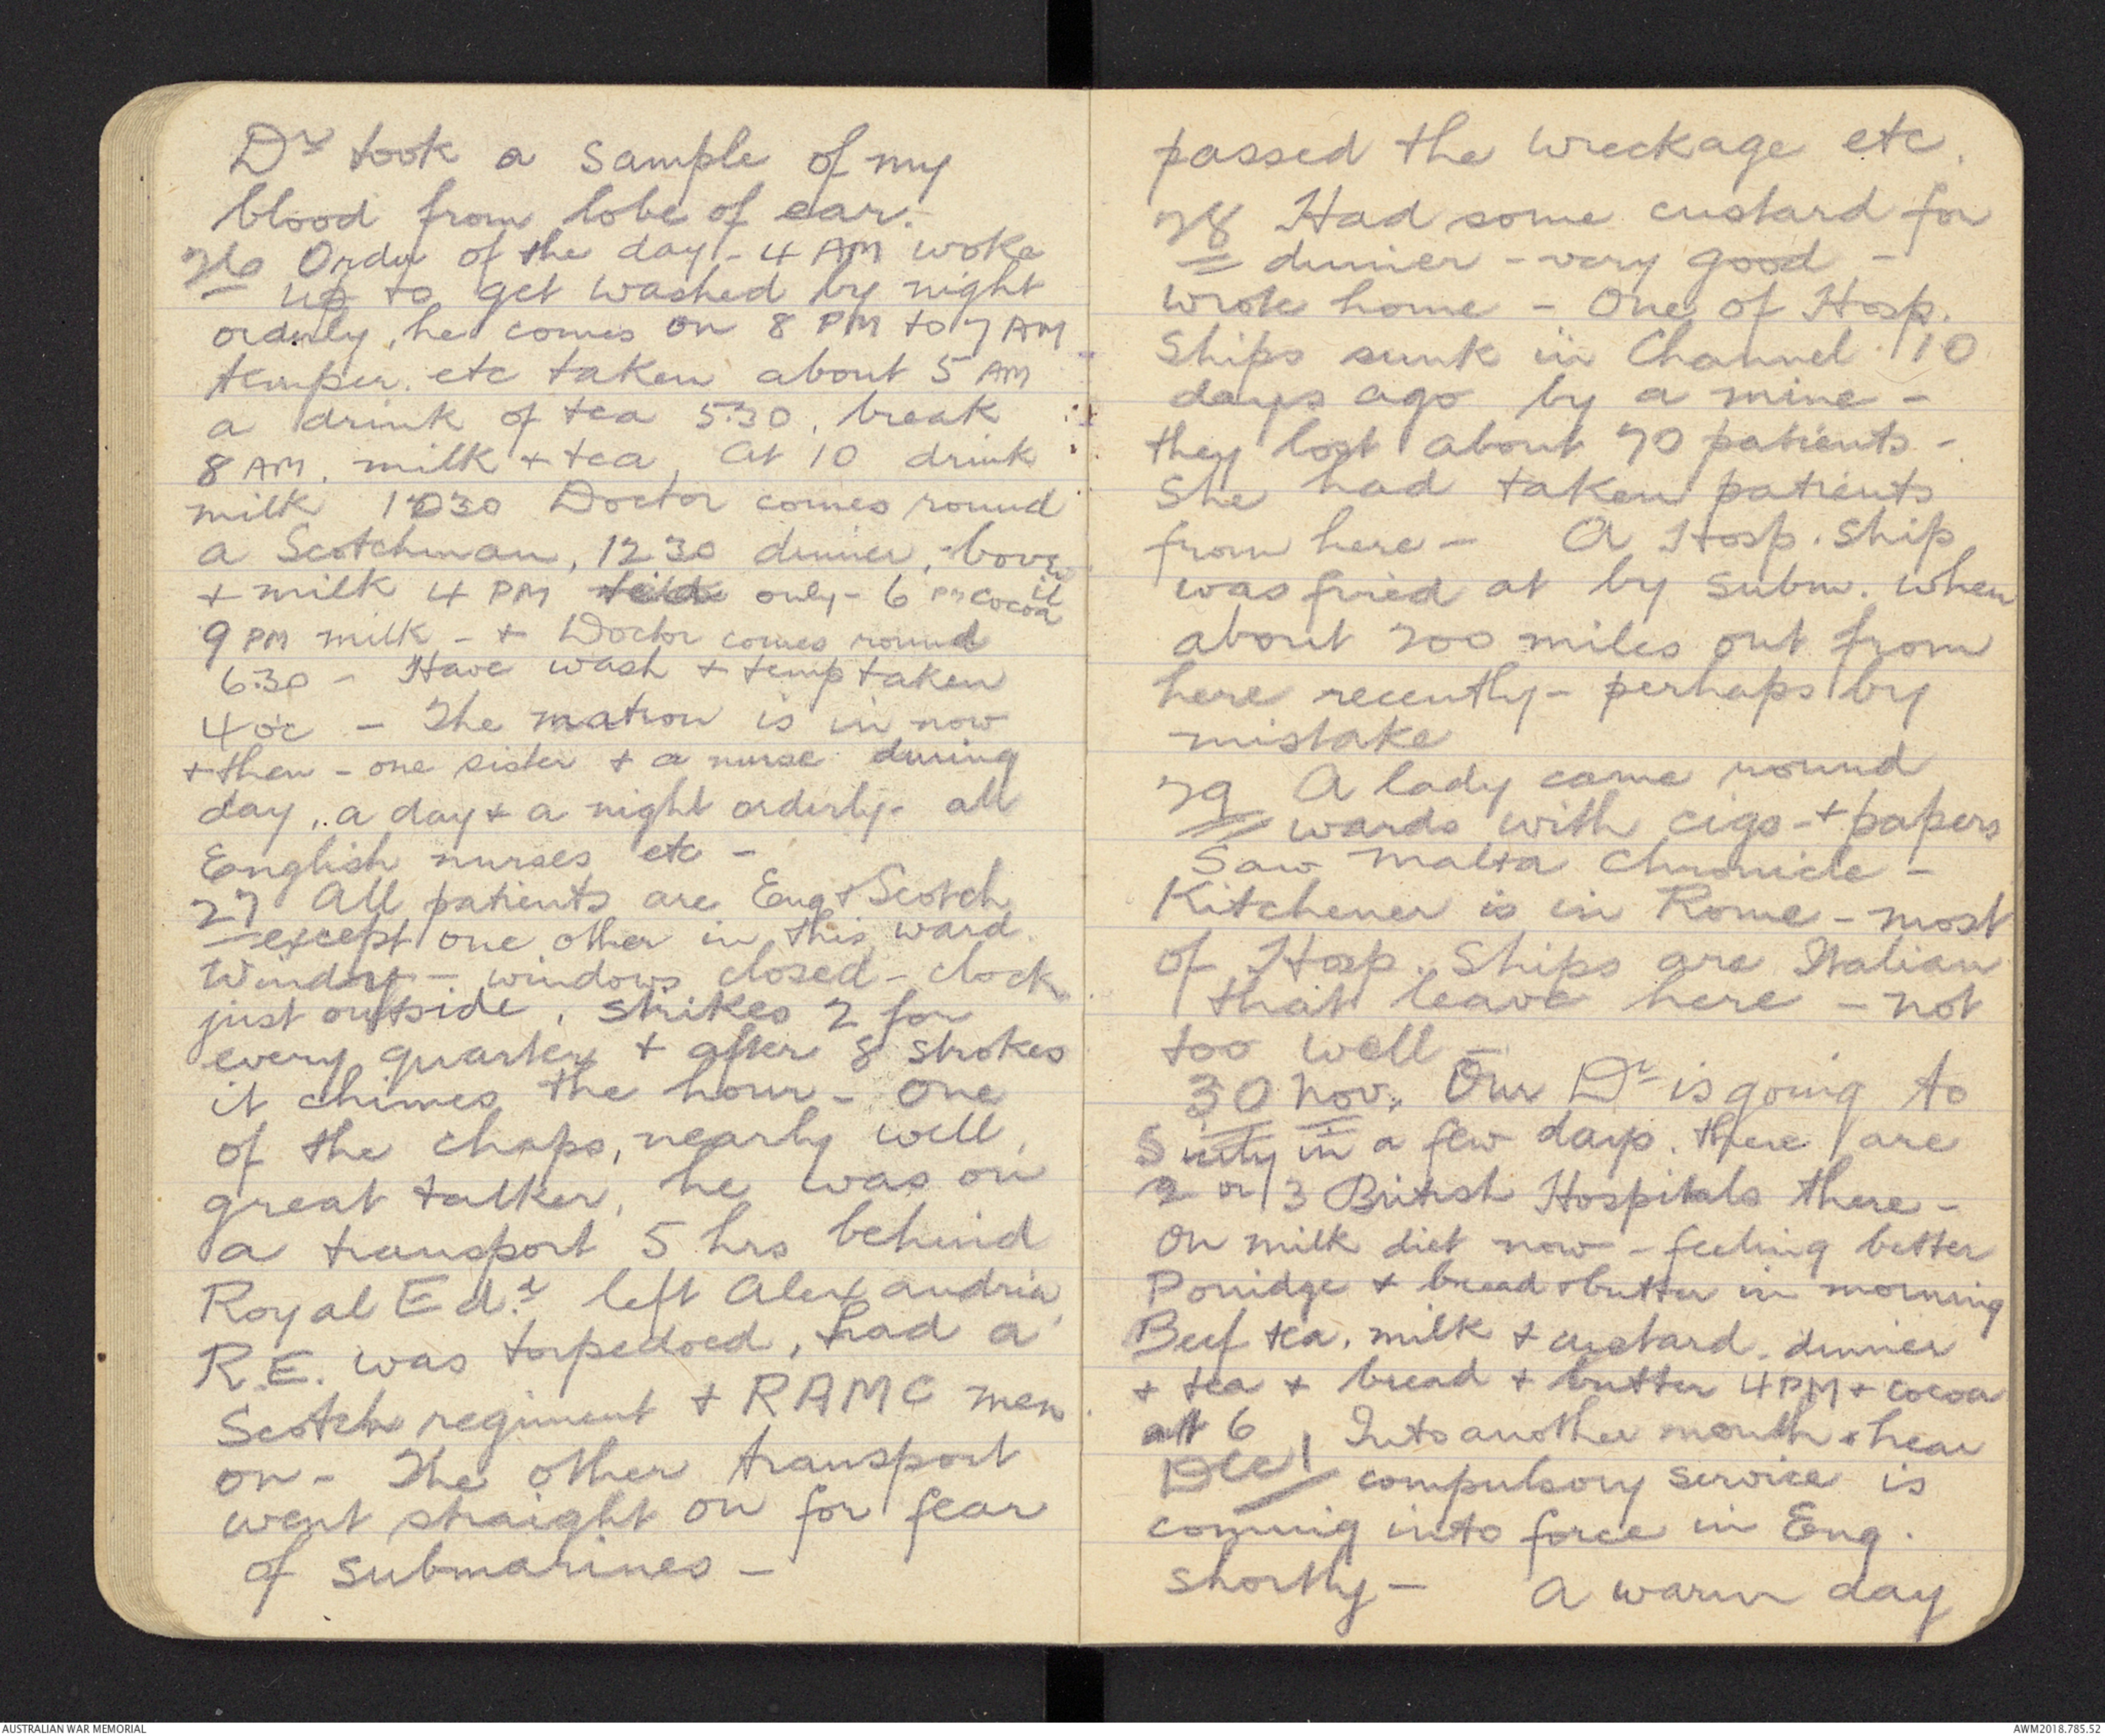 Dr took a sample of my
blood from lobe of ear.
26 Order of the day - 4 AM woke
up to get washed by night
orderly, he comes on 8 PM to 7 AM
temper. etc taken about 5 AM
a drink of tea 5.30, break
8 AM. milk + tea, At 10 drink
milk 1030 Doctor comes round
a Scotchman, 12 30 dinner, bovril
+ milk 4 PM only - 6 PM cocoa
9 PM milk - + Doctor comes round
6.30 - Have wash + temp taken
4 oc - The matron is in now
+ then - one sister + a nurse during
day, a day + a night orderly - all
English nurses etc -
27 All patients are Eng + Scotch
except one other in this ward.
Windy - windows closed - clock
just outside, strikes 2 for
every quarter + after 8 strokes
it chimes the hour - One
of the chaps, nearly well,
great talker, he was on
a transport 5 hrs behind
Royal Ed.d left Alexandria
R.E. was torpedoed, had a
Scotch regiment + RAMC men
on - The other transport
went straight on for fear
of submarines -
passed the wreckage etc.
28 Had some custard for
dinner - very good -
wrote home - One of Hosp.
Ships sunk in Channel 10
days ago by a mine -
they lost about 70 patients -
She had taken patients
from here - A Hosp. Ship
was fired at by subm. when
about 200 miles out from
here recently - perhaps by
mistake
29 A lady came round
wards with cigs + papers
Saw Malta Chronicle -
Kitchener is in Rome - most
of Hosp. Ships are Italian
that leave here - not
too well -
30 Nov. Our Dr is going to
in a few days. there are
2 or 3 British Hospitals there -
On milk diet now - feeling better
Porridge + bread + butter in morning
Beef tea, milk + custard. dinner
+ tea + bread + butter 4 PM + cocoa
at 6
Dec 1 Into another month + hear
compulsory service is
coming into force in Eng.
shortly - A warm day
AUSTRALIAN WAR MEMORIAL
AWM2018.785.52